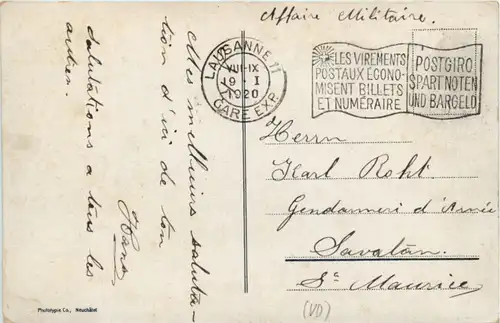 Affaire Militaire.
LAUSANNE 11
VIII-IX
19 I
1920
GARE EXP.
LES VIREMENTS
POSTAUX ECONO-
MISENT BILLETS
ET NUMÉRAIRE
POSTGIRO
SPART NOTEN
UND BARGELD
Herrn
Karl Roht
Gendarmeri d'Armée
Savatan.
St Maurice
(VD)
Mes meilleurs saluta-
tion d'ici de ton
Hans
salutations a tous les
autres.
Phototypie Co., Neuchâtel